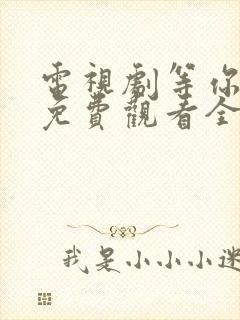 電視劇等你
免費觀看全
我是小小小迷